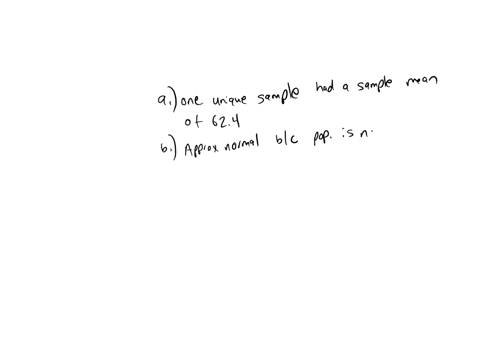 a.) one unique sample had a sample mean
of 62.4
b.) Approx normal b/c pop. is n.